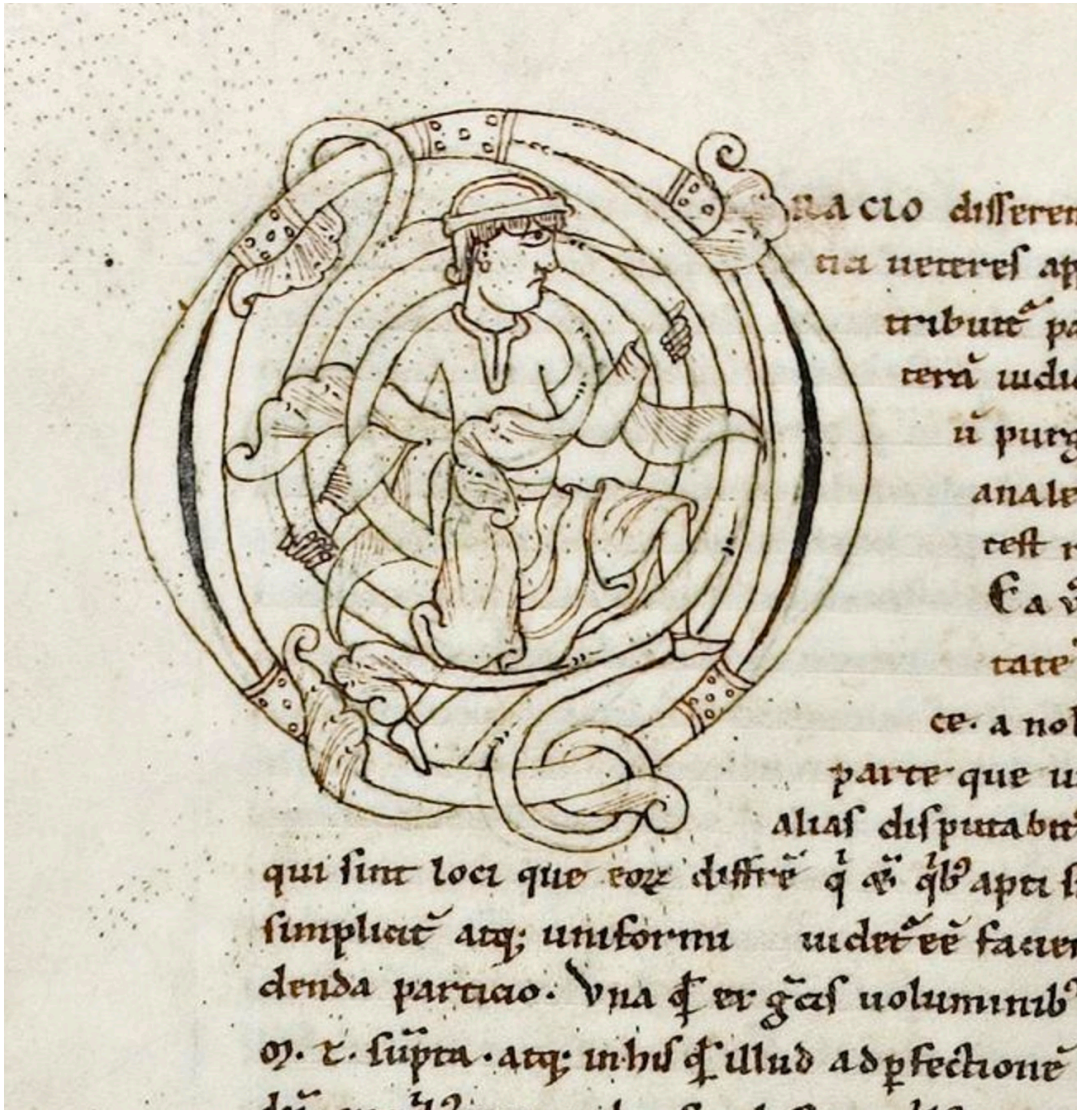 ORACIO differen
tici ueteres ap
tribuit̄ pa
terā iudic
ū purg
anale
test r
Ea v̊
tate
ce. a nob
parte que u
alias disputabit᷑
qui sint loci que eoꝝ diffrē qͥ qͥbꝰ apti si
simplicit᷑ atq; uniformi uidet᷑ eē facien
denda particio. Vna ꝗͥ er gͣcis uoluminibꝰ
M. T. sūpta. atq; in his ꝗͥ illud ad ꝑfectionē